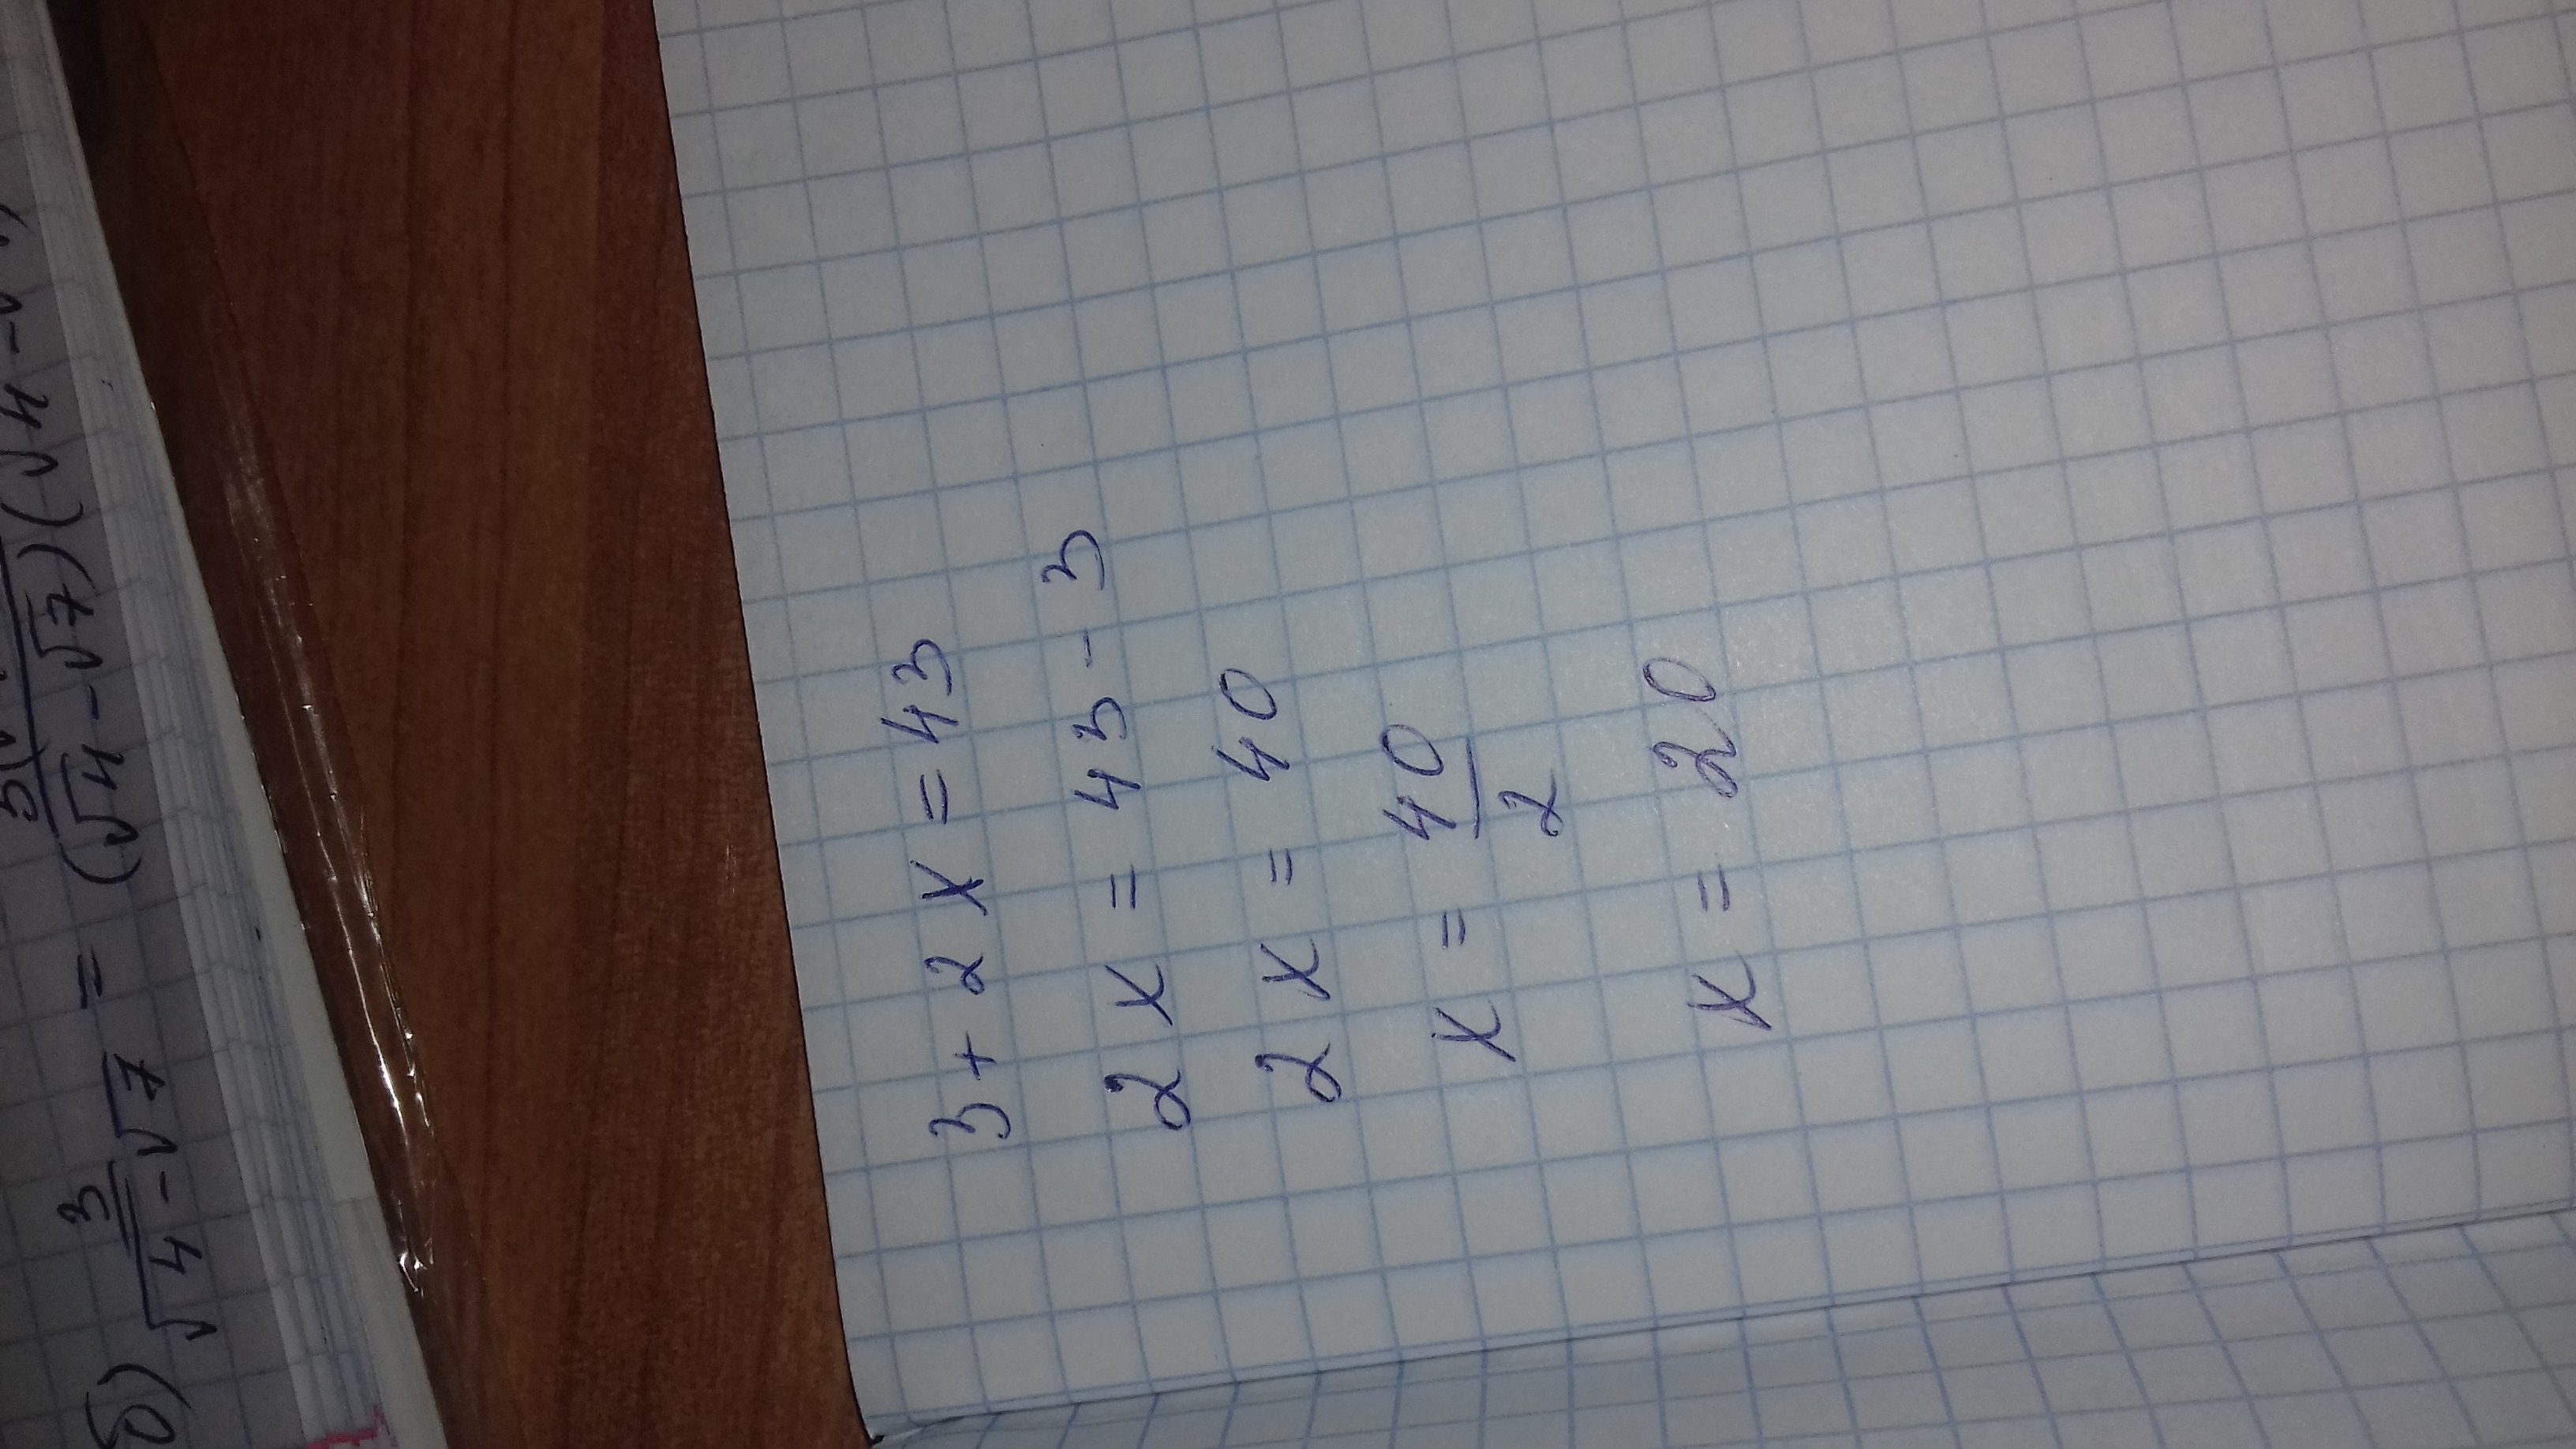 б) 3/(√4-√7) = 3(/(√4-√7)(√4-√
3+2x=43
2x = 43-3
2x = 40
x = 40/2
x = 20